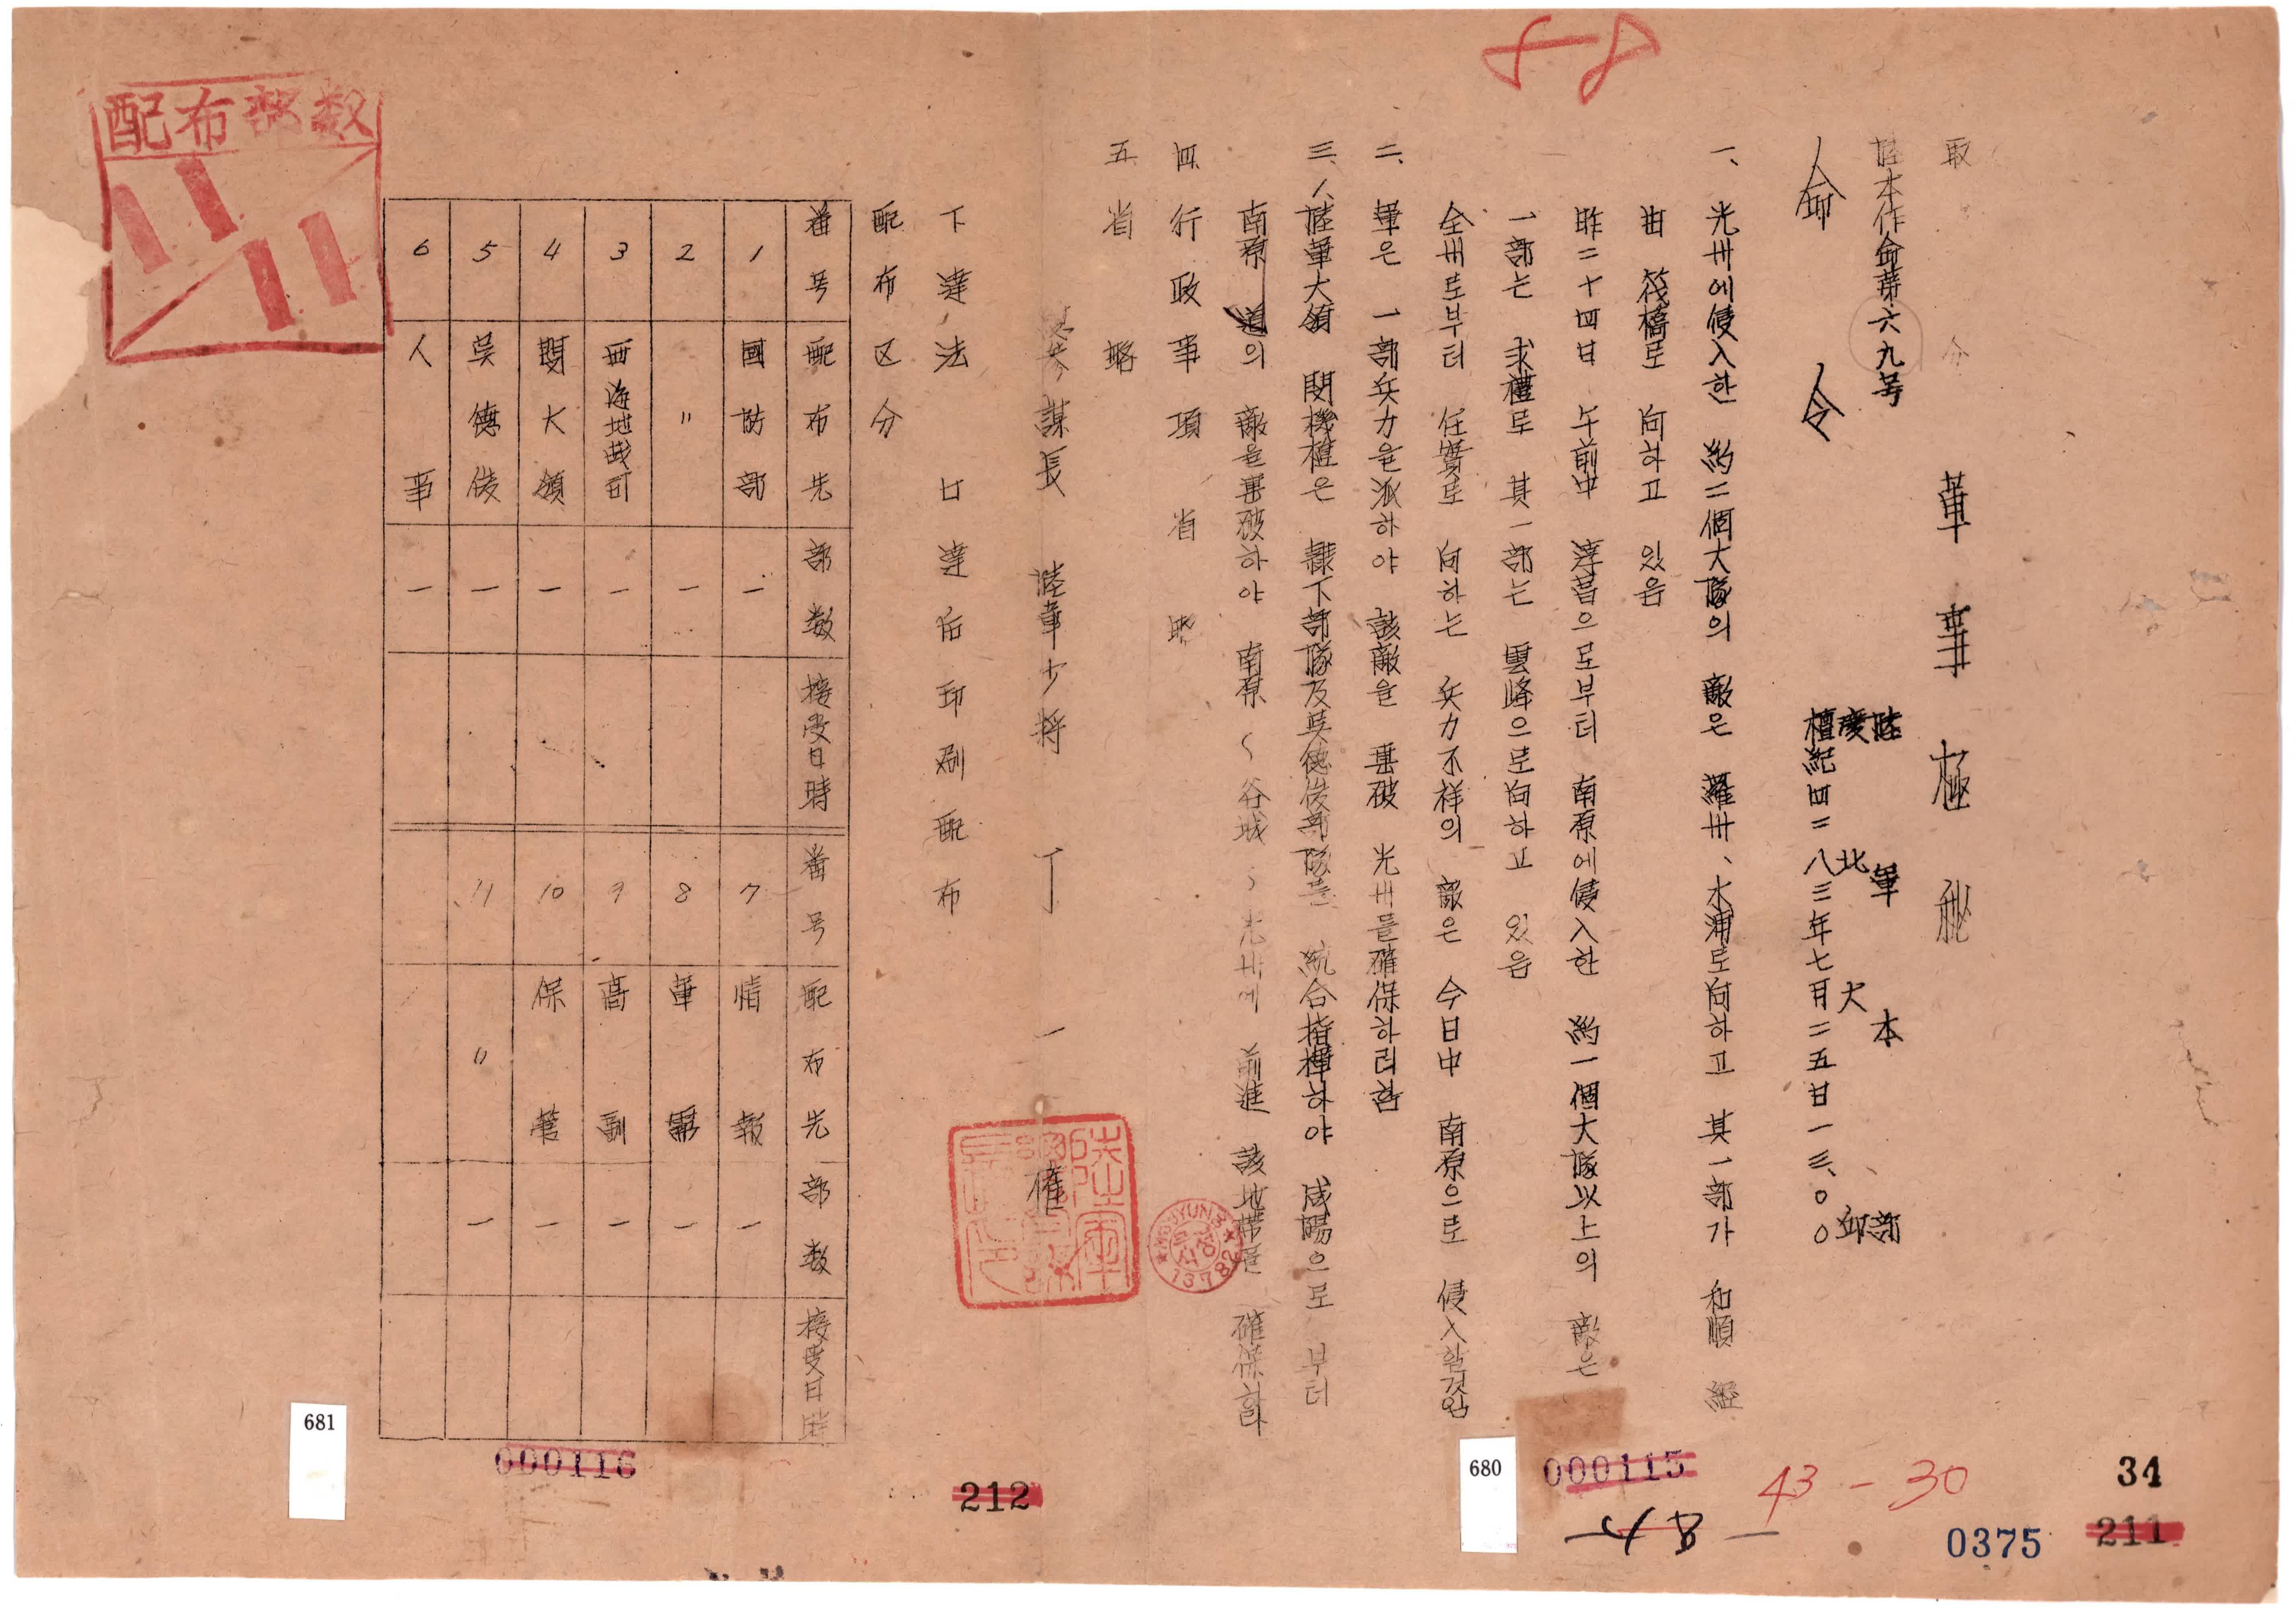 58
取分 軍事極秘
陸本作命第六九号
陸軍本部
慶北大邱
檀紀四二八三年七月二五日一三、〇〇
命令
一、光州에侵入한 約二個大隊의 敵은 羅州、木浦로向하고 其一部가 和順 經
由 筏橋로 向하고 있음
昨二十四日 午前中 淳昌으로부터 南原에侵入한 約一個大隊以上의 敵은
一部는 求禮로 其一部는 雲峰으로向하고 있음
全州로부터 任實로 向하는 兵力不祥의 敵은 今日中 南原으로 侵入할것임
二、軍은 一部兵力을派하야 該敵을 擊破 光州를確保하려함
三、人陸軍大領 閔機植은 隸下部隊及吳德俊部隊를 統合指揮하야 咸陽으로부터
南原 道의 敵을擊破하야 南原~谷城~光州에 前進 該地帶를 確保할
四 行政事項 省略
五 省略
參謀長 陸軍少將 丁一權
下達法 口達后印刷配布
配布区分
番号 配布先 部数 接受日時 番号 配布先 部数 接受日時
1 國防部 一 7 情報 一
2 〃 一 8 軍需 一
3 西海地戰司 一 9 高訓 一
4 閔大領 一 10 保管 一
5 吳德俊 一 11 〃 一
6 人事 一
配布部数
11
11
13782
681
000116
212
680
000115
43-30
34
0375
211